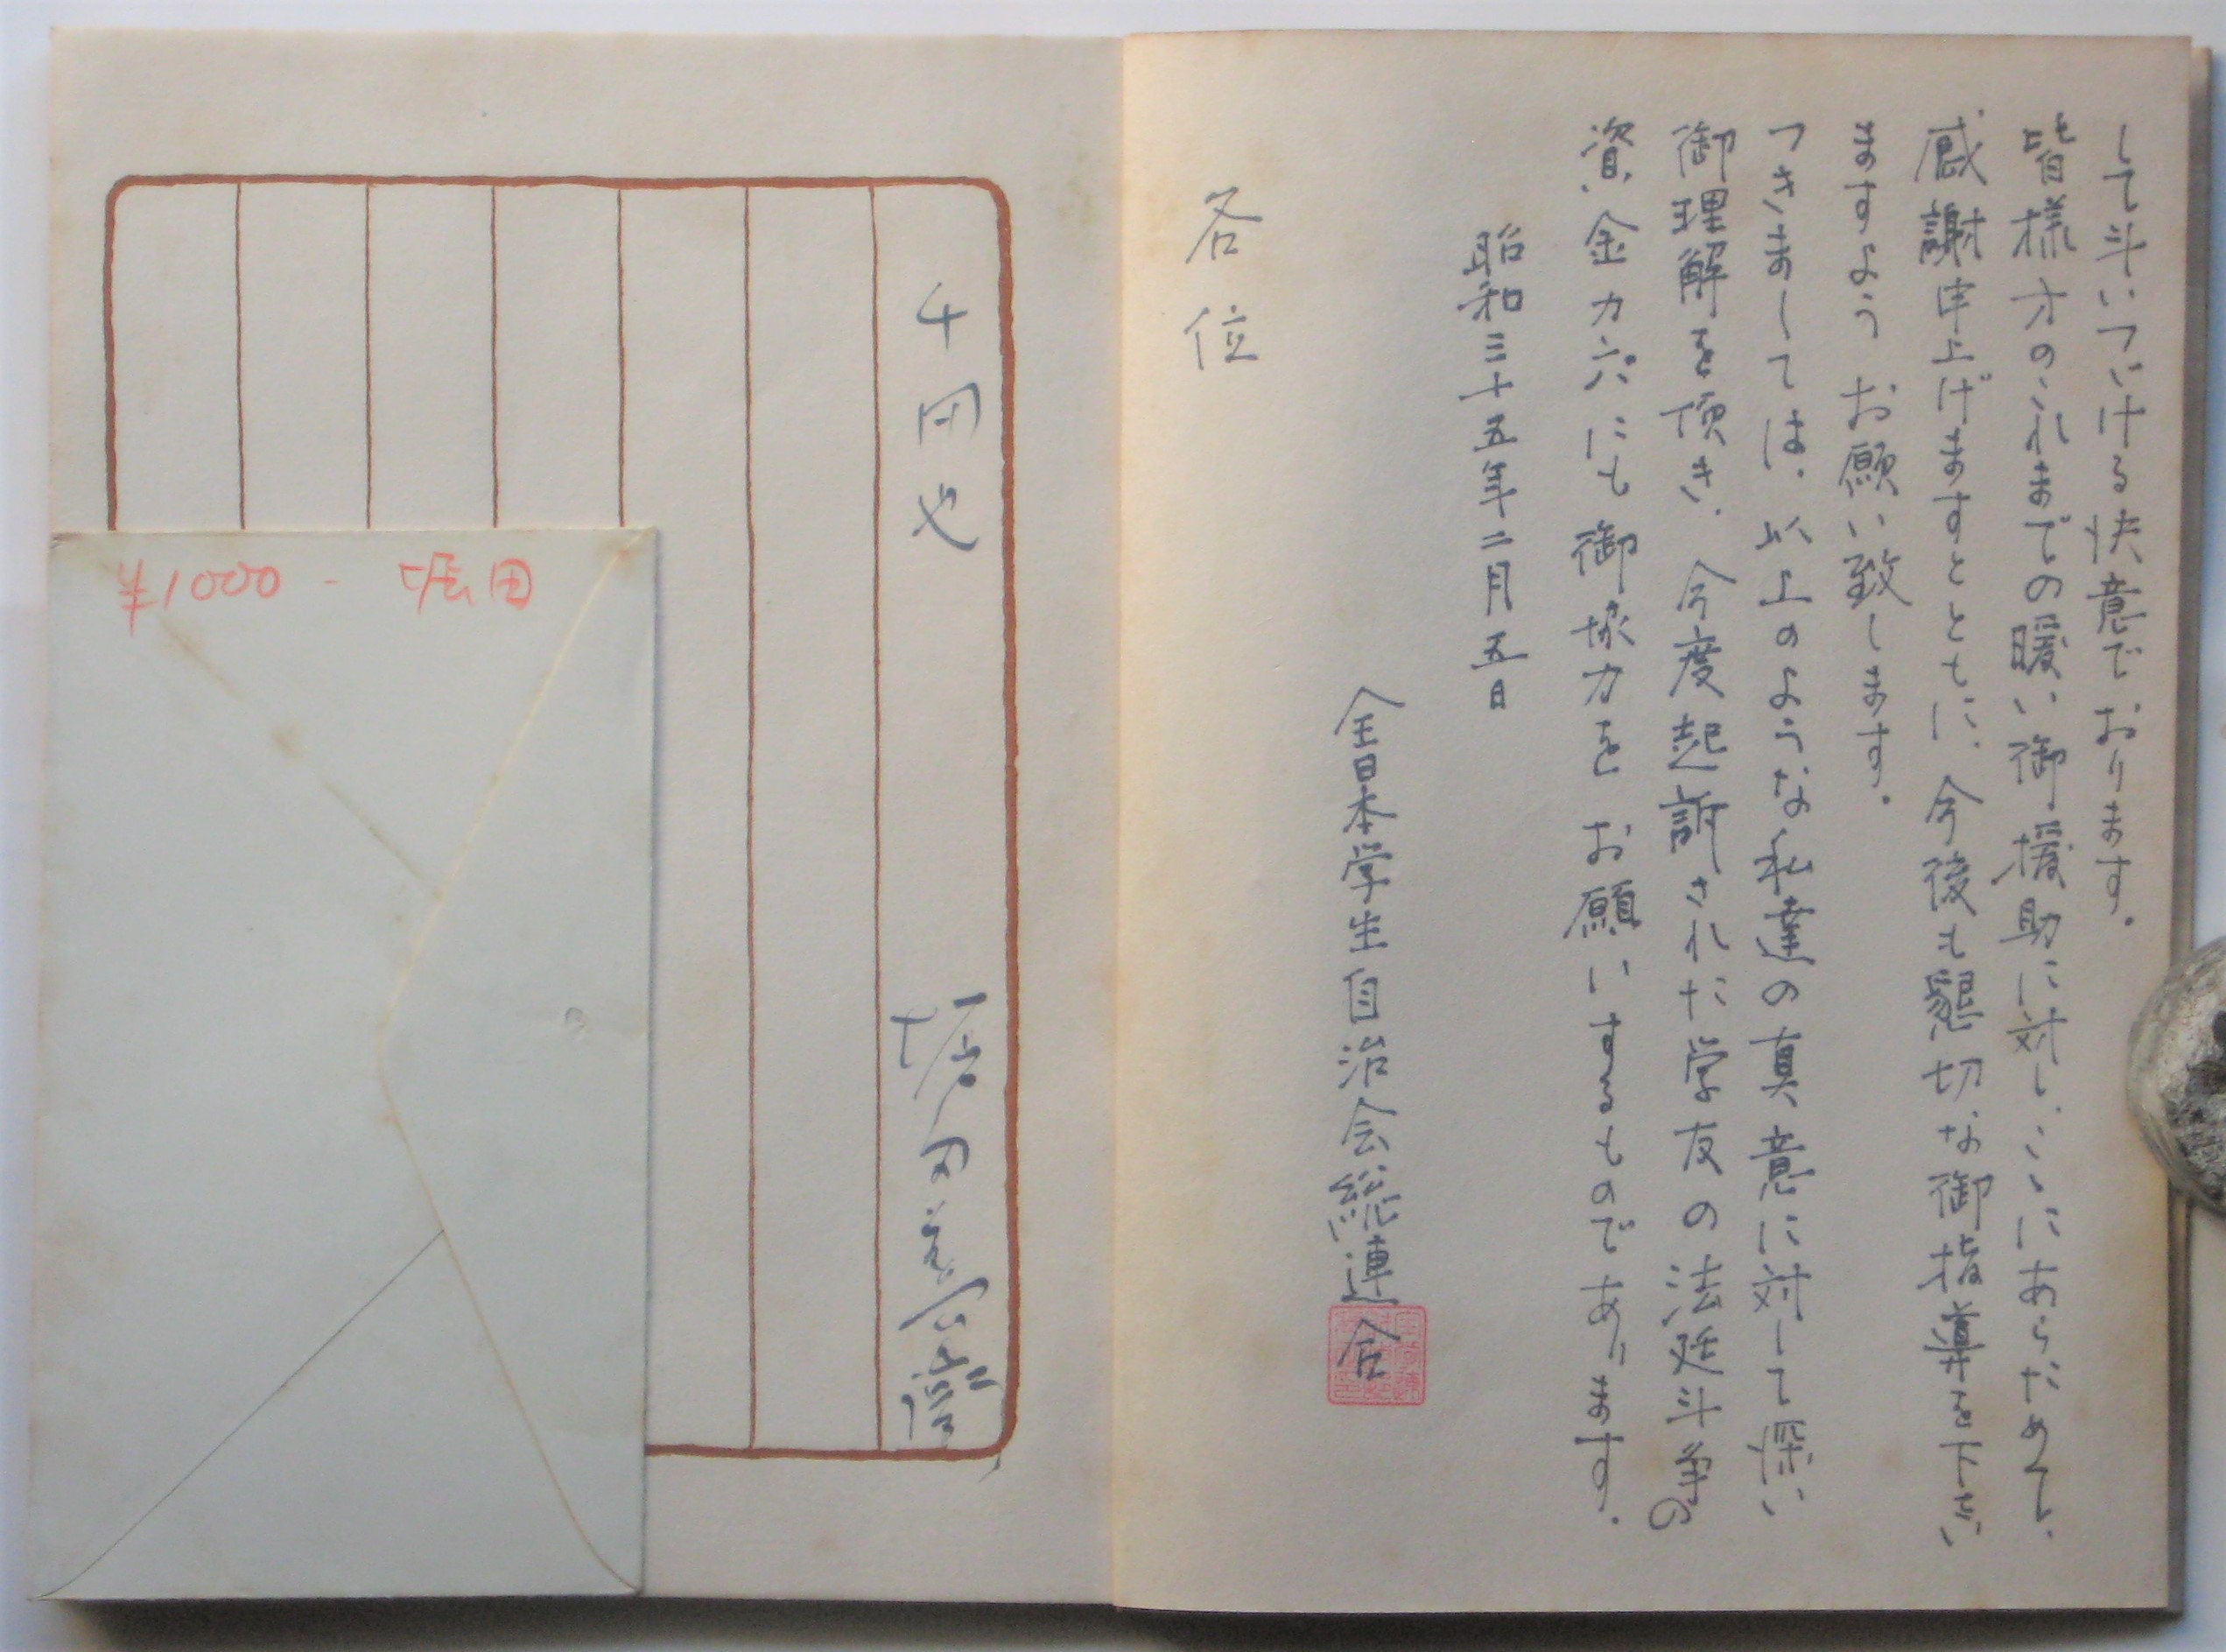 して斗いつゞける決意でおります。
皆様方のこれまでの暖い御援助に対し、こゝにあらだめて、
感謝申上げますとともに、今後も懇切な御指導を下だい
ますよう お願い致します。
つきましては、以上のような私達の真意に対して深い
御理解を頂き、今度起訴された学友の法廷斗争の
資金カンパにも御協力を お願いするものであります。
昭和三十五年二月五日
全日本学生自治会総連合
各位
千円也 堀田善衛
¥1000- 堀田